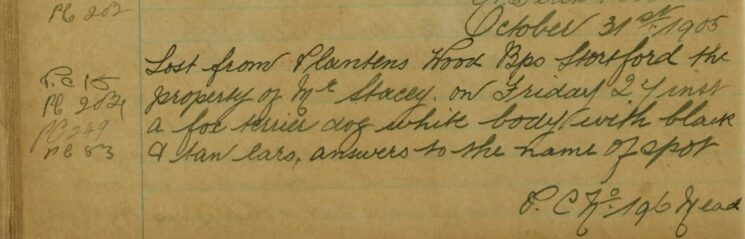 PC 202
October 31st 1905
Lost from Plantens Wood Bps Stortford the
P.C 15
property of Mr Stacey. on Friday 27 inst
PC 202
a fox terrier dog white body with black
PC 249
& tan ears, answers to the name of spot
PC 83
P. C No. 196 Mead